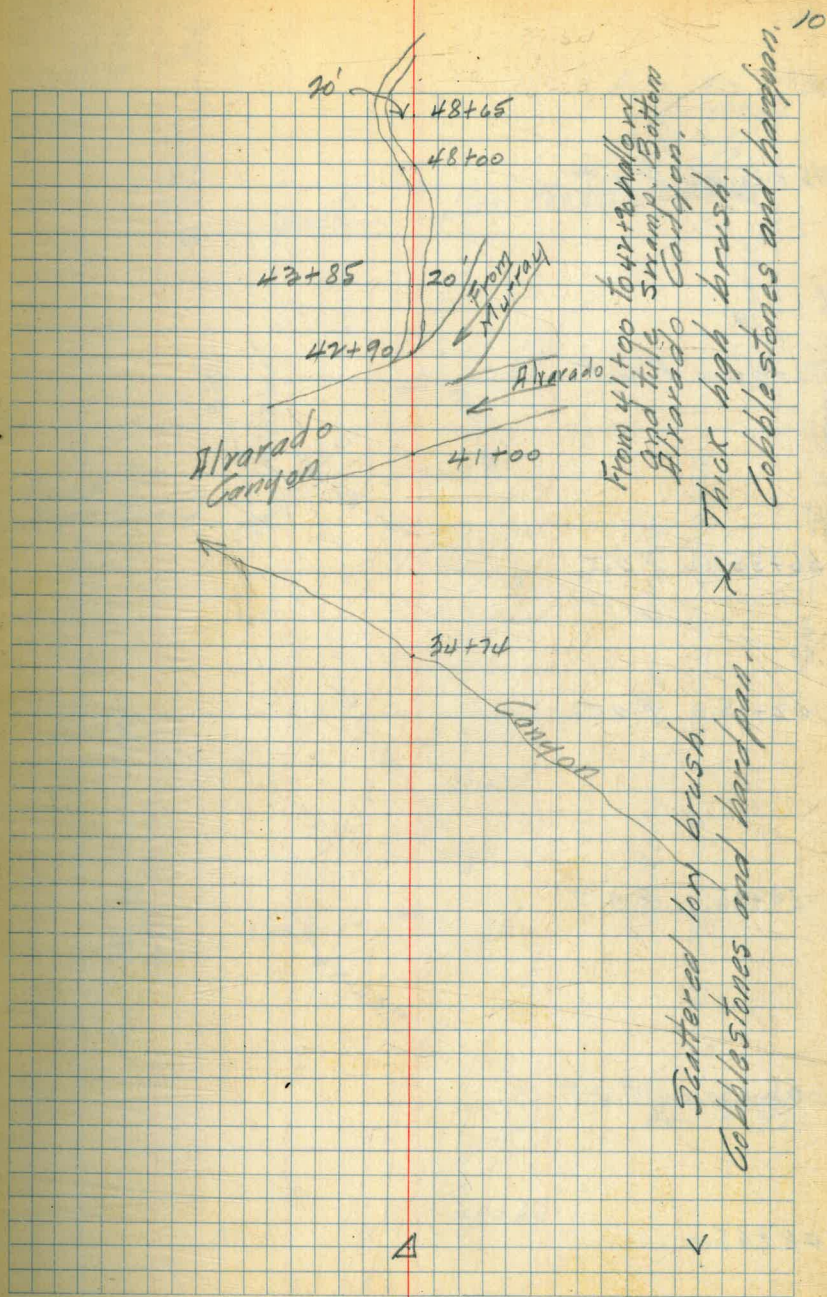 10
20'
48+65
48+00
43+85
20'
From
Murray
42+90
Alvarado
Alvarado
Canyon
41+00
34+74
Canyon
From 41+00 to 42+90 willow
and tule swamp. Bottom
Alvarado Canyon.
Thick high brush.
Cobblestones and hardpan.
Scattered low brush.
Cobblestones and hardpan.